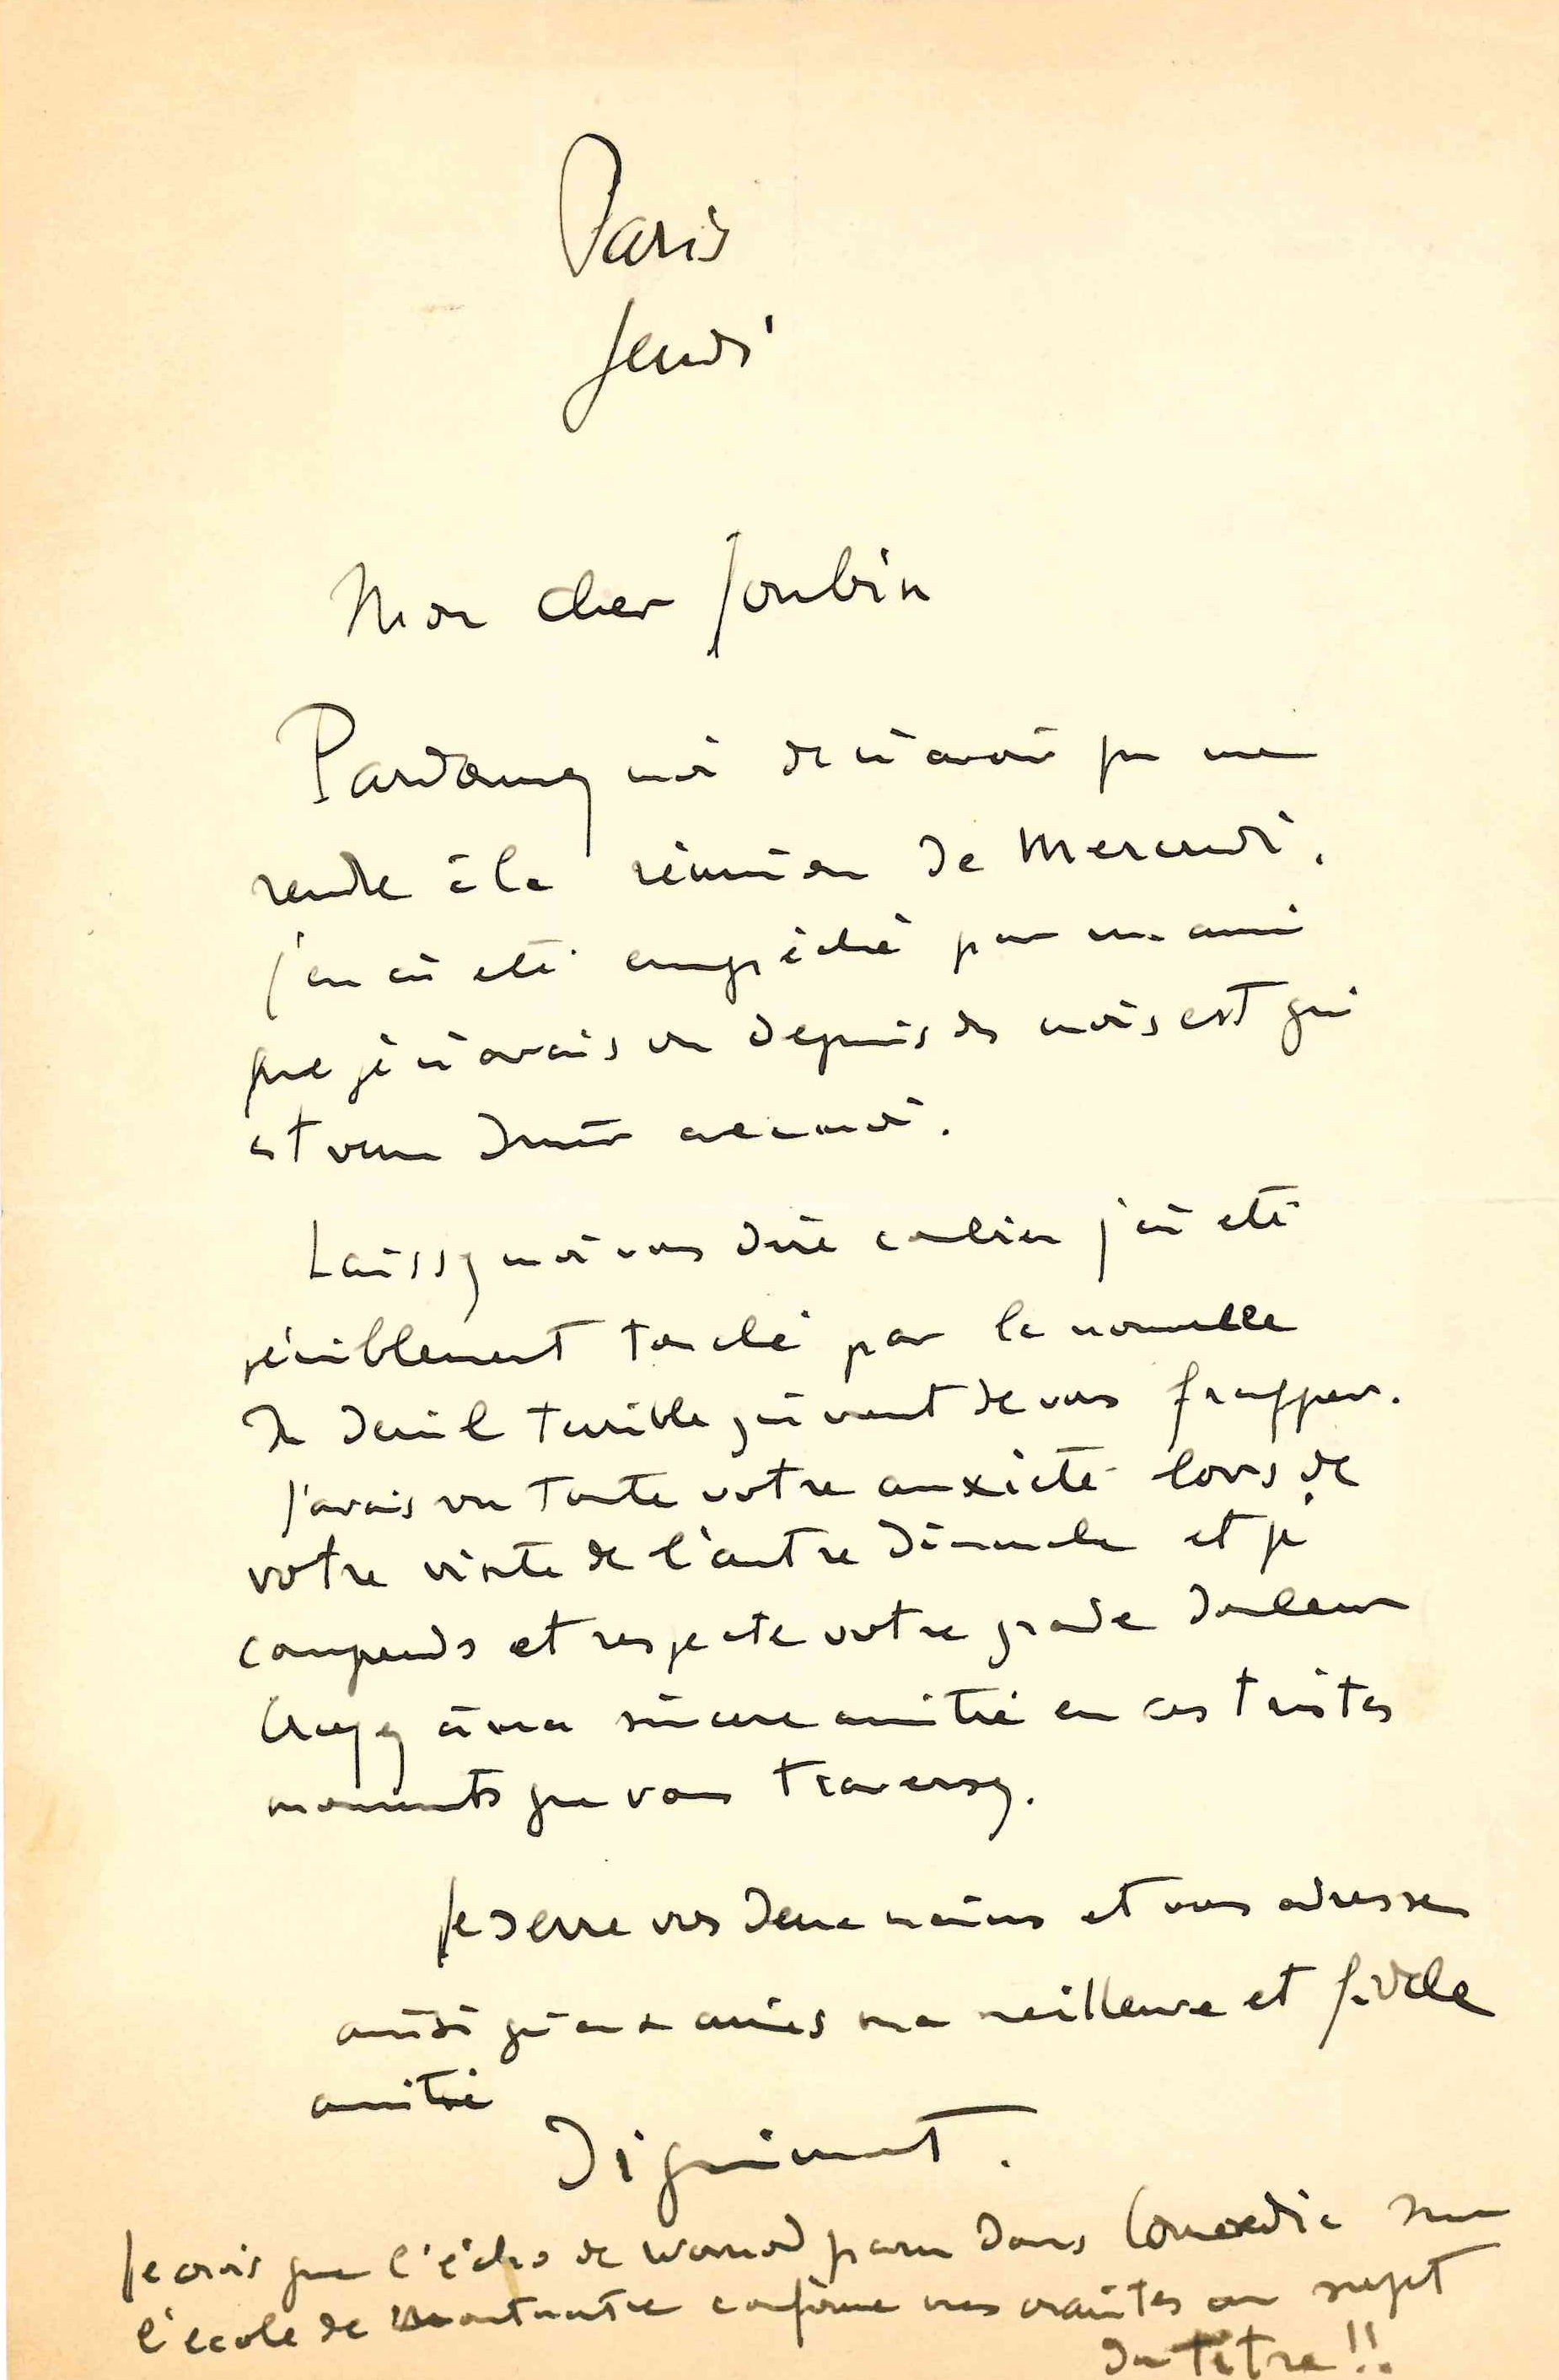 Paris
Jeudi
Mon cher Joubin
Pardonnez moi de n'avoir pu me
rendre à la réunion de Mercredi.
j'en ai été empêché par un ami
que je n'avais vu depuis des mois est qui
est venu diner avec moi.
Laissez moi vous dire combien j'ai été
péniblement touché par la nouvelle
du deuil terrible qui vient de vous frapper.
J'avais vu toute votre anxiété lors de
votre visite de l'autre dimanche et je
comprends et respecte votre grande douleur
Croyez à ma sincère amitié en ces tristes
moments que vous traversez.
Je serre vos deux mains et vous adresse
ainsi qu'aux amies ma meilleure et fidèle
amitié
Dignimont.
Je crois que l'écho de Warnod paru dans Comoedia sur
l'école de Montmartre confirme mes craintes au sujet
du titre!!